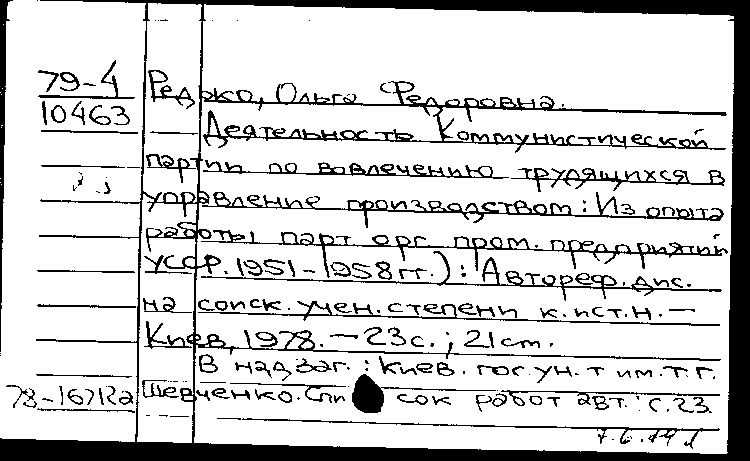 79-4
10463
Редько, Ольга Федоровна.
Деятельность Коммунистической
партии по вовлечению трудящихся в
управление производством: Из опыта
работы парт орг пром. предприятий
УССР. 1951-1958гг.): Автореф. дис.
на соиск. учен. степени к.ист.н. —
Киев, 1978. — 23с.; 21см.
В надзаг.: Киев. гос. ун. т им. Т. Г.
Шевченко. Спи сок работ авт.: с. 23.
78-16712а
7.6.79